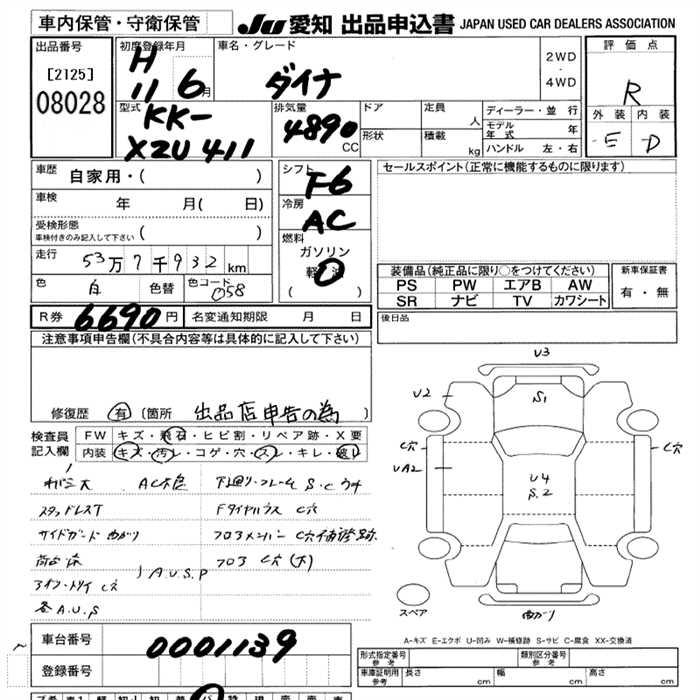 車内保管・守衛保管
JU 愛知 出品申込書 JAPAN USED CAR DEALERS ASSOCIATION
出品番号
[2125]
08028
初度登録年月
H
11 6月
車名・グレード
ダイナ
2WD
・
4WD
評価点
R
外装 内装
E D
型式
KK-
XZU411
排気量
4890
CC
ドア
形状
定員 人
積載 kg
ディーラー・並 行
モデル年式 年
ハンドル 左・右
車歴
自家用・( )
車検 年 月( 日)
受検形態
車検付きのみ記入して下さい ( )
走行 53万7千932km
色 白 色替 色コード 058
シフト
F6
冷房
AC
燃料
ガソリン
軽油
( )
セールスポイント(正常に機能するものに限ります)
装備品(純正品に限り○をつけてください)
PS PW エアB AW
SR ナビ TV カワシート
新車保証書
有・無
R券 6690円 名変通知期限 月 日
後日品
注意事項申告欄(不具合内容等は具体的に記入して下さい)
修復歴 有 (箇所 出品店申告の為)
検査員
記入欄
FW キズ・飛石・ヒビ割・リペア跡・X要
内装 キズ・汚レ・コゲ・穴・スレ・キレ・破レ
下廻り・フレーム S.Cウキ
スタッドレスT
Fタイヤハウス C穴
サイドガード 曲がり
フロアメンバー C穴 補修跡
フロア C穴(下)
A.U.S.P
各A.U.S
V3
U2
S1
C穴
UA2
U4
S.2
C穴
スペア
曲がり
A-キズ E-エクボ U-凹み W-補修跡 S-サビ C-腐食 XX-交換済
車台番号 0001139
登録番号
形式指定番号
参考
類別区分番号
参考
車庫証明用
参考
長さ cm 幅 cm 高さ cm